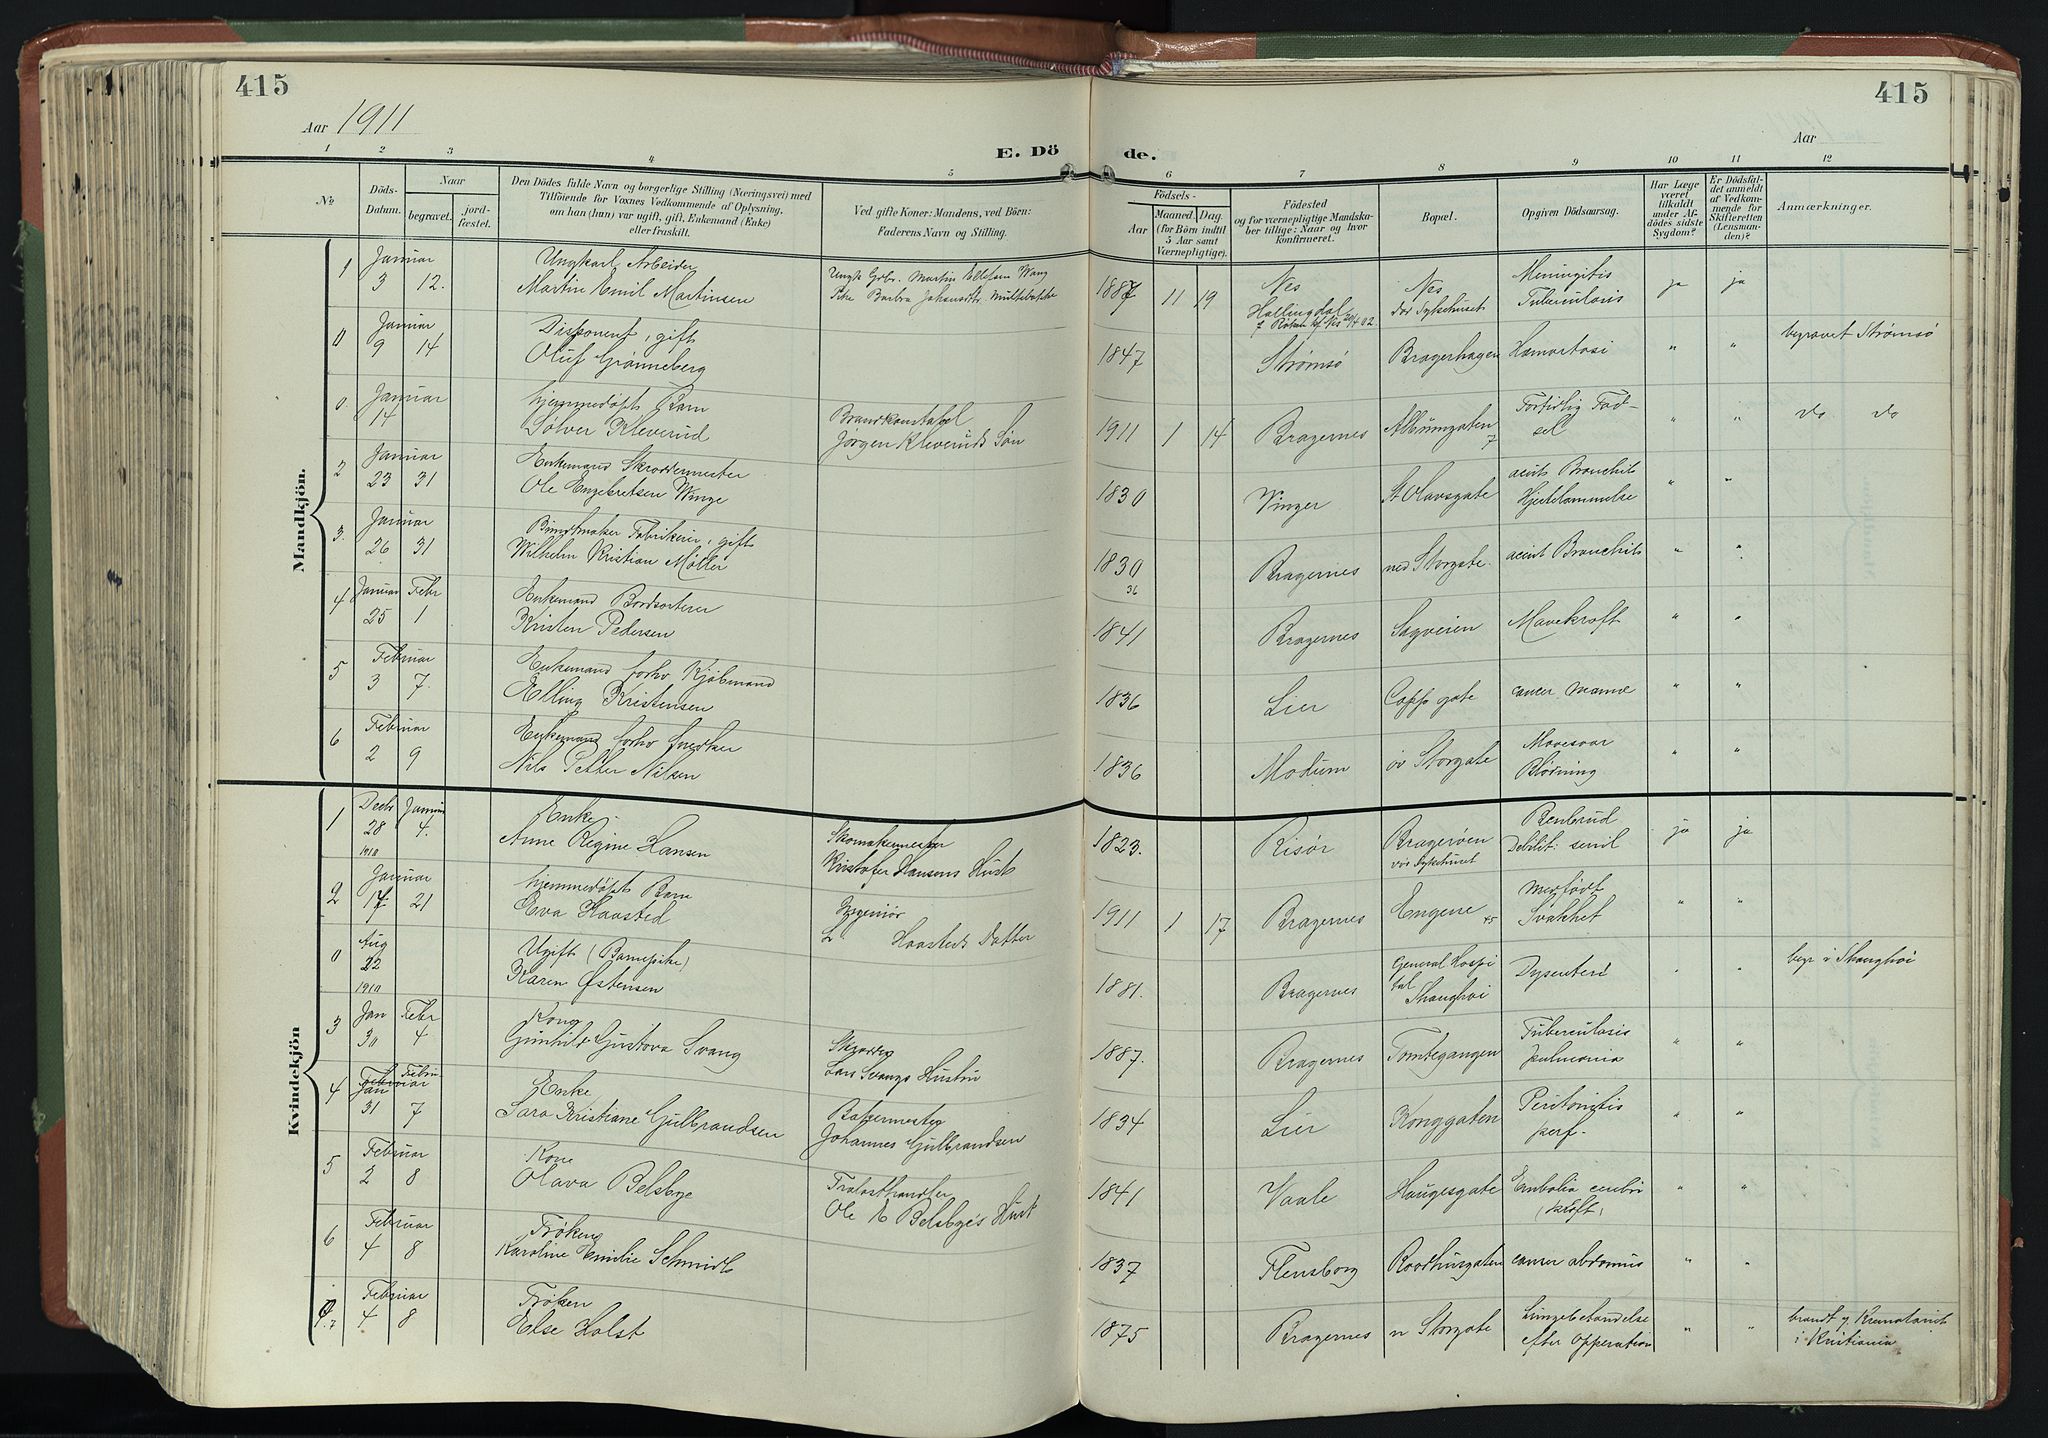 415
415
Aar 1911
Aar
E. Döde.
1 2 3 4 5 6 7 8 9 10 11 12
№
Döds-Datum.
Naar
begravet.
jord-fæstet.
Den Dödes fulde Navn og borgerlige Stilling (Næringsvei) med
Tilföiende for Voxnes Vedkommende af Oplysning,
om han (hun) var ugift, gift, Enkemand (Enke)
eller fraskilt.
Ved gifte Koner: Mandens, ved Börn:
Faderens Navn og Stilling.
Födsels-
Aar
Maaned. Dag.
(for Börn indtil
5 Aar samt
Værnepligtige).
Födested
og for værnepligtige Mandska-
ber tillige: Naar og hvor
konfirmeret.
Bopæl.
Opgiven Dödsaarsag.
Har Læge
været
tilkaldt
under Af-
dödes sidste
Sygdom?
Er Dödsfal-
det anmeldt
af Vedkom-
mende for
Skifteretten
(Lensman-
den)?
Anmærkninger.
Mandkjön.
1 Januar 3 12. Ungkarl Arbeider
Martin Emil Martinsen
Martin Ellefsen Wang
Pike Barbra
1887 11 19 Nes
Hallingdal
Nes
Dør Sykehuset
Meningitis
Tuberculosis
ja ja
0 Januar 9 14 Disponent, gift
Oluf Grønneberg
1847 Strømsø Bragerhagen Hæmartasi " " begravet Strømsø
0. Januar 14 hjemmedøpt Barn
Sølver Kleverud
Brandkonstabel
Jørgen Kleveruds Søn
1911 1 14 Bragernes Albumgaten 7 Fortidlig Fød-
sel " " do do
2 Januar 23 31 Enkemand Skræddermester
Ole Engebretsen Winge
1830 Vinger St Olavsgate acut Bronchit
Hjertelammelse " "
3. Januar 26 31 Buntmaker Fabrikeier, gift
Wilhelm Kristian Møller
1830
36
Bragernes ned Storgate. acut Bronchit " "
4 Januar 25 Febr 1 Enkemand Bordsorterer
Kristen Pedersen
1841 Bragernes Sagveien Mavekræft " "
5 Februar 3 7. Enkemand forhv Kjøbmand
Elling Kristensen
1836 Lier Capp gate cancer mamæ " "
6 Februar 2 9 Enkemand forhv snedker
Nils Petter Nilsen
1836 Modum øv Storgate Mavesaar
Blødning " "
Kvindekjön
1 Decbr 28 1910 Januar 4. Enke.
Anne Regine Hansen
Skomakermester
Kristofer Hansens Hust
1823. Risør Bragerøen
Sykehuset
Benbrud
Debilit: senil ja ja
2 Januar 17 21 hjemmedøpt Barn
Eva Haasted
Ingeniør
Haasteds Datter
1911 1 17 Bragernes Engene 45 Medfødt
Svakhet " "
0 Aug 22 1910 Ugift (Barnepike)
Karen Østensen
1881. Bragernes General Hospi
tal
Shanghai Dysenteri " " begr i Shanghai
3 Jan 30 Febr 4 Kone
Gunhild Gustava Svang
Lars Svangs Hustru
1887. Bragernes Tomtegangen Tuberculosis
pulmonia " "
4 Februar
Jan 31 Febru. 7 Enke
Sara Kristiane Gulbrandsen
Bakermester
Johannes Gulbrandsen
1834 Lier Konggaten Peritonitis
perf. " "
5 Februar 2 8 Kone
Olava Belsbye
Trælasthandler
Ole E Belsbyes Hust
1841 Vaale Haugesgate Embolia cerebri
" "
6 Februar 4 8 Frøken
Karoline Emilie Schmidt
1837 Flensborg Raadhusgaten canser abdomus " "
7 Februar 4 8 Frøken
Else Holst
1875 Bragernes n Storgate Lungebetændelse
efter Opperation " " brændt v Krematoriet
i Kristiania